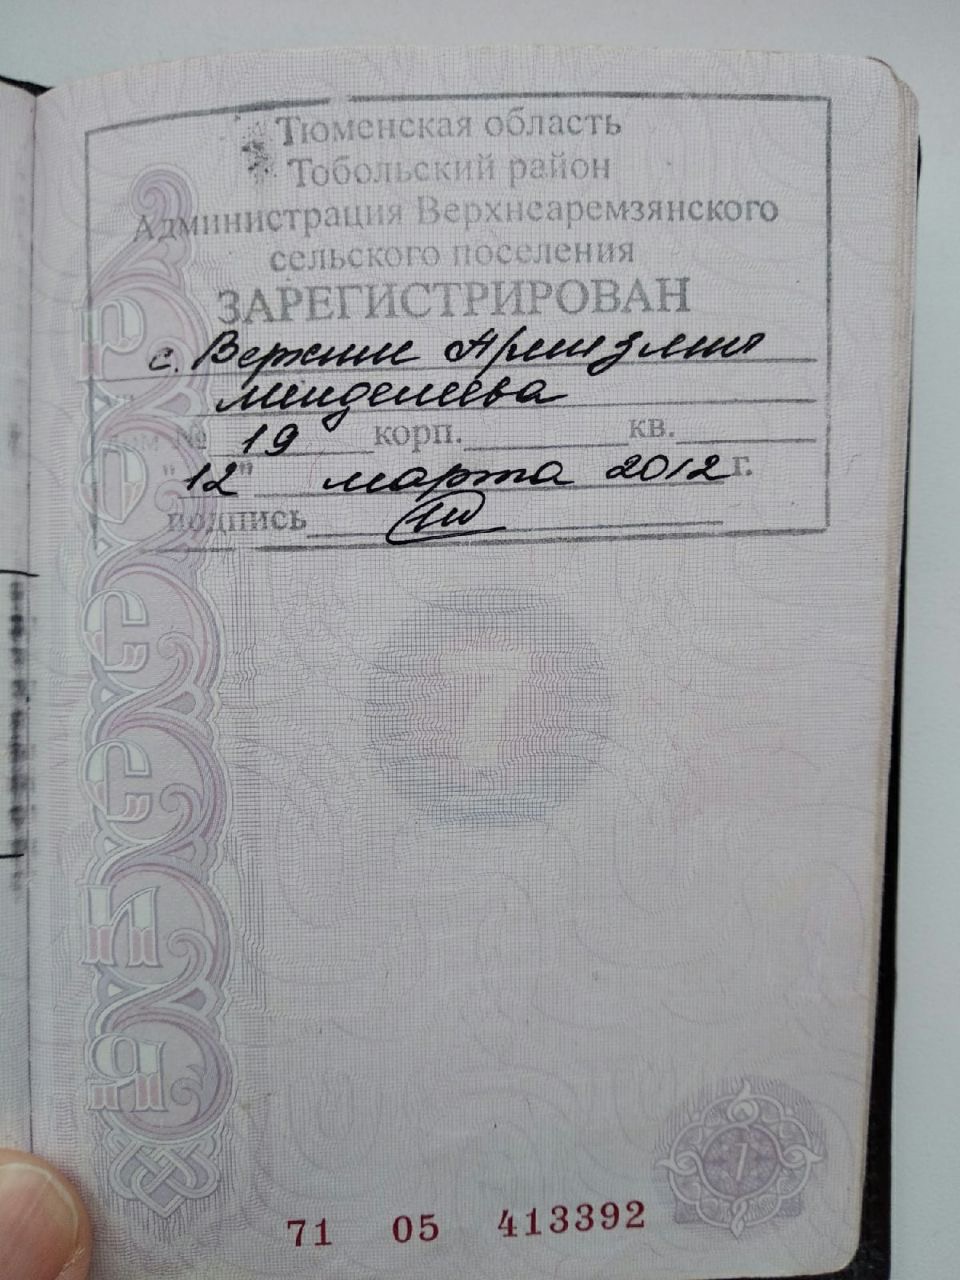 Тюменская область
Тобольский район
Администрация Верхнеаремзянского
сельского поселения
ЗАРЕГИСТРИРОВАН
с. Верхние Аремзяни
менделеева
дом № 19 корп. кв.
"12" марта 2012 г.
подпись
РОССИЯ
7
7
71 05 413392